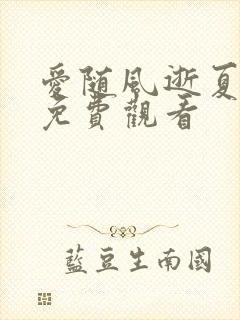 愛随風逝夏
免費觀看
藍豆生南國